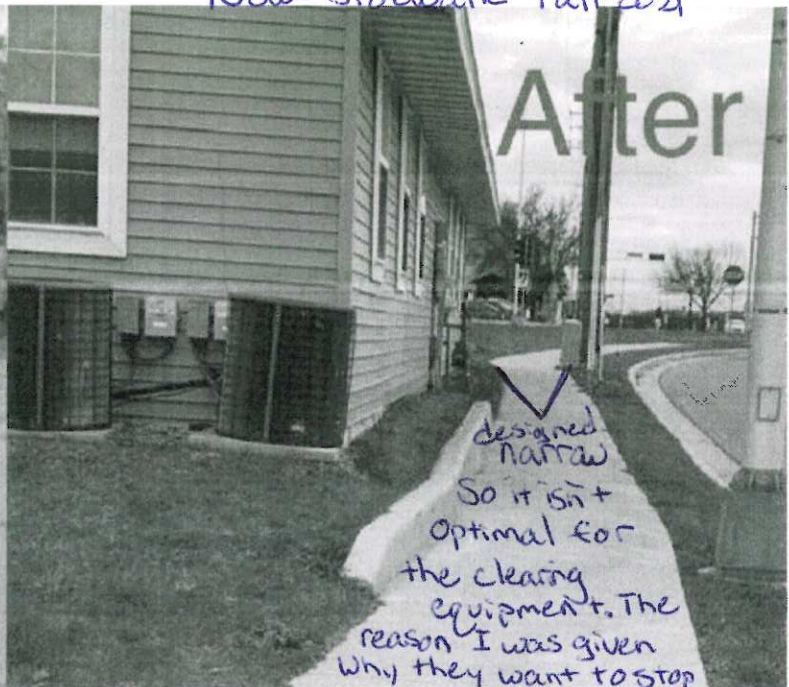 New Sidewalk Fall 2021
After
designed
narrow
So it isn't
Optimal for
the clearing
equipment. The
reason I was given
Why they want to stop